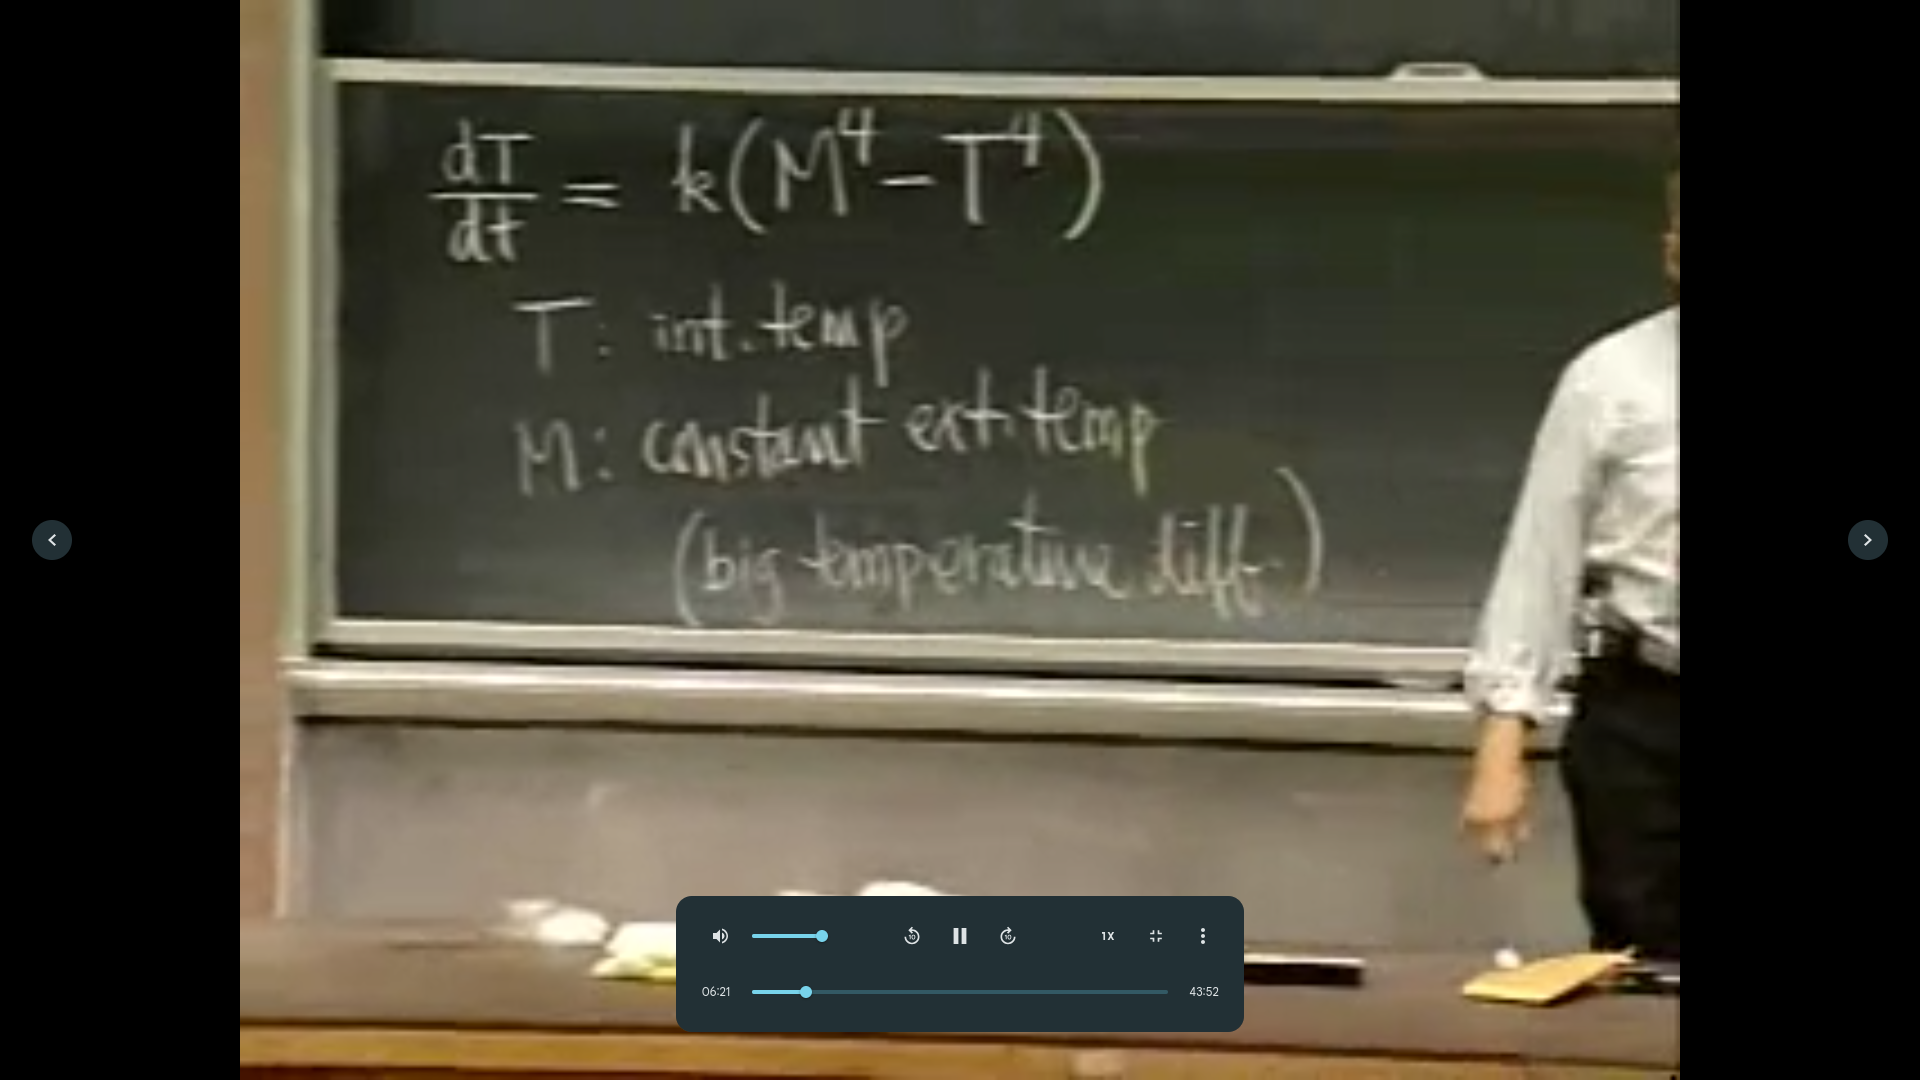 dT/dt = k(M⁴ − T⁴)
T: int. temp
M: constant ext. temp
(big temperature diff.)
10 10 1X
06:21 43:52